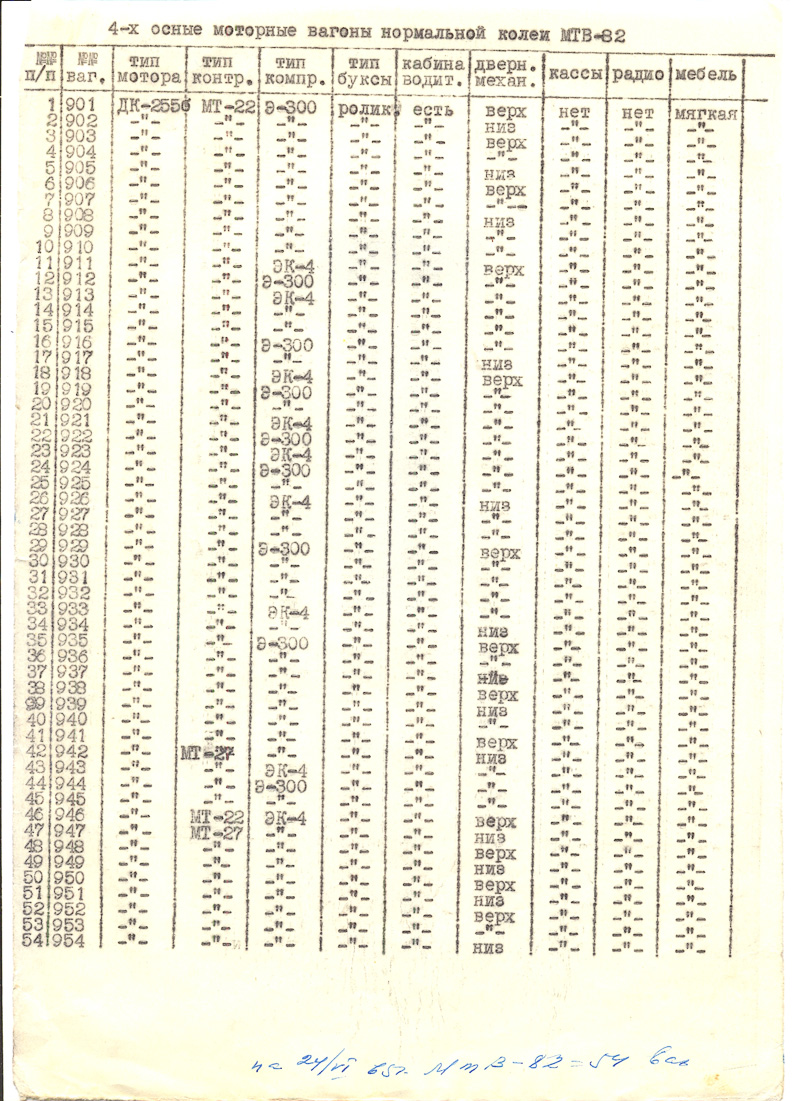 4-х осные моторные вагоны нормальной колеи МТВ-82
№№ п/п №№ ваг. тип мотора тип контр. тип компр. тип буксы кабина водит. дверн. механ. кассы радио мебель
1 901 ДК-255б МТ-22 Э-300 ролик. есть верх нет нет мягкая
2 902 -"- -"- -"- -"- -"- низ -"- -"- -"-
3 903 -"- -"- -"- -"- -"- верх -"- -"- -"-
4 904 -"- -"- -"- -"- -"- -"- -"- -"- -"-
5 905 -"- -"- -"- -"- -"- низ -"- -"- -"-
6 906 -"- -"- -"- -"- -"- верх -"- -"- -"-
7 907 -"- -"- -"- -"- -"- -"- -"- -"- -"-
8 908 -"- -"- -"- -"- -"- низ -"- -"- -"-
9 909 -"- -"- -"- -"- -"- -"- -"- -"- -"-
10 910 -"- -"- -"- -"- -"- -"- -"- -"- -"-
11 911 -"- -"- ЭК-4 -"- -"- верх -"- -"- -"-
12 912 -"- -"- Э-300 -"- -"- -"- -"- -"- -"-
13 913 -"- -"- ЭК-4 -"- -"- -"- -"- -"- -"-
14 914 -"- -"- -"- -"- -"- -"- -"- -"- -"-
15 915 -"- -"- -"- -"- -"- -"- -"- -"- -"-
16 916 -"- -"- Э-300 -"- -"- -"- -"- -"- -"-
17 917 -"- -"- -"- -"- -"- низ -"- -"- -"-
18 918 -"- -"- ЭК-4 -"- -"- верх -"- -"- -"-
19 919 -"- -"- Э-300 -"- -"- -"- -"- -"- -"-
20 920 -"- -"- -"- -"- -"- -"- -"- -"- -"-
21 921 -"- -"- ЭК-4 -"- -"- -"- -"- -"- -"-
22 922 -"- -"- Э-300 -"- -"- -"- -"- -"- -"-
23 923 -"- -"- ЭК-4 -"- -"- -"- -"- -"- -"-
24 924 -"- -"- Э-300 -"- -"- -"- -"- -"- -"-
25 925 -"- -"- -"- -"- -"- -"- -"- -"- -"-
26 926 -"- -"- ЭК-4 -"- -"- низ -"- -"- -"-
27 927 -"- -"- -"- -"- -"- -"- -"- -"- -"-
28 928 -"- -"- -"- -"- -"- -"- -"- -"- -"-
29 929 -"- -"- Э-300 -"- -"- верх -"- -"- -"-
30 930 -"- -"- -"- -"- -"- -"- -"- -"- -"-
31 931 -"- -"- -"- -"- -"- -"- -"- -"- -"-
32 932 -"- -"- -"- -"- -"- -"- -"- -"- -"-
33 933 -"- -"- ЭК-4 -"- -"- -"- -"- -"- -"-
34 934 -"- -"- -"- -"- -"- низ -"- -"- -"-
35 935 -"- -"- Э-300 -"- -"- верх -"- -"- -"-
36 936 -"- -"- -"- -"- -"- -"- -"- -"- -"-
37 937 -"- -"- -"- -"- -"- низ -"- -"- -"-
38 938 -"- -"- -"- -"- -"- верх -"- -"- -"-
39 939 -"- -"- -"- -"- -"- низ -"- -"- -"-
40 940 -"- -"- -"- -"- -"- -"- -"- -"- -"-
41 941 -"- -"- -"- -"- -"- верх -"- -"- -"-
42 942 -"- МТ-27 -"- -"- -"- низ -"- -"- -"-
43 943 -"- -"- ЭК-4 -"- -"- -"- -"- -"- -"-
44 944 -"- -"- Э-300 -"- -"- -"- -"- -"- -"-
45 945 -"- -"- -"- -"- -"- -"- -"- -"- -"-
46 946 -"- МТ-22 ЭК-4 -"- -"- верх -"- -"- -"-
47 947 -"- МТ-27 -"- -"- -"- низ -"- -"- -"-
48 948 -"- -"- -"- -"- -"- верх -"- -"- -"-
49 949 -"- -"- -"- -"- -"- низ -"- -"- -"-
50 950 -"- -"- -"- -"- -"- верх -"- -"- -"-
51 951 -"- -"- -"- -"- -"- низ -"- -"- -"-
52 952 -"- -"- -"- -"- -"- верх -"- -"- -"-
53 953 -"- -"- -"- -"- -"- -"- -"- -"- -"-
54 954 -"- -"- -"- -"- -"- низ -"- -"- -"-
на 24/VI 65г. МТВ-82=54 ваг